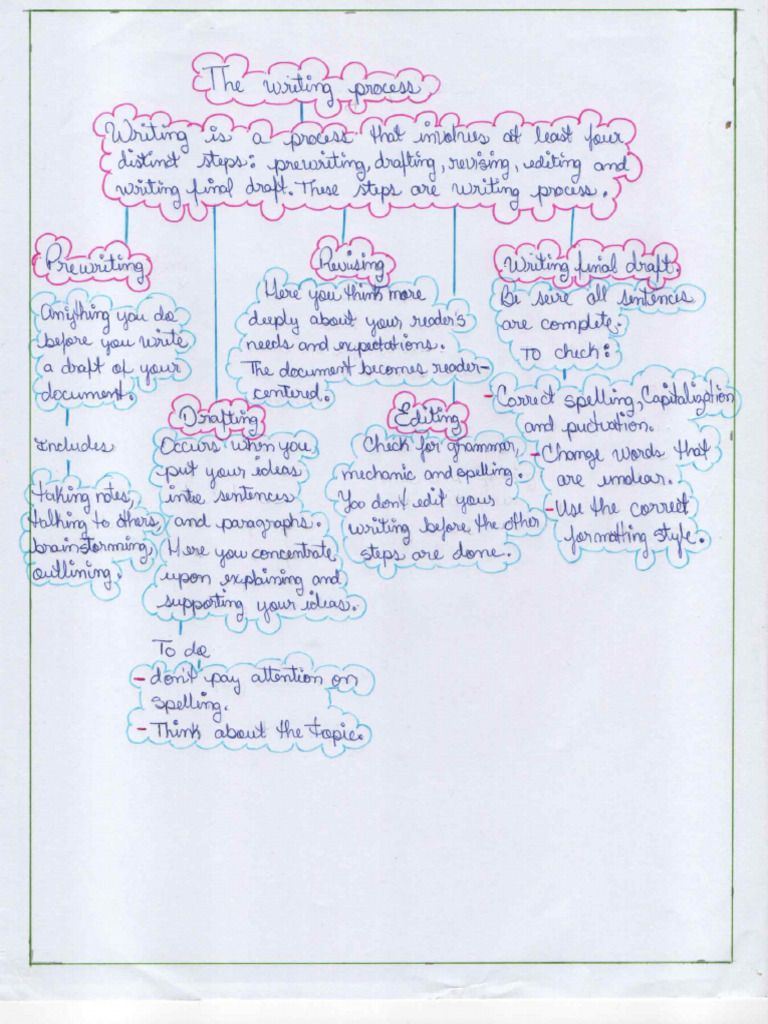 The writing process
Writing is a process that involves at least four
distinct steps: prewriting, drafting, revising, editing and
writing final draft. These steps are writing process.
Prewriting
Anything you do
before you write
a draft of your
document.
Includes
taking notes,
talking to others,
brainstorming,
outlining.
Drafting
Occurs when you
put your ideas
into sentences
and paragraphs.
Here you concentrate
upon explaining and
supporting your ideas.
To do
- don't pay attention on
spelling.
- Think about the topic.
Revising
Here you think more
deeply about your reader's
needs and expectations.
The document becomes reader-
centered.
Editing
Check for grammar,
mechanic and spelling.
You don't edit your
writing before the other
steps are done.
Writing final draft.
Be sure all sentences
are complete.
To check:
- Correct spelling, Capitalization
and puctuation.
- Change words that
are unclear.
- Use the correct
formatting style.